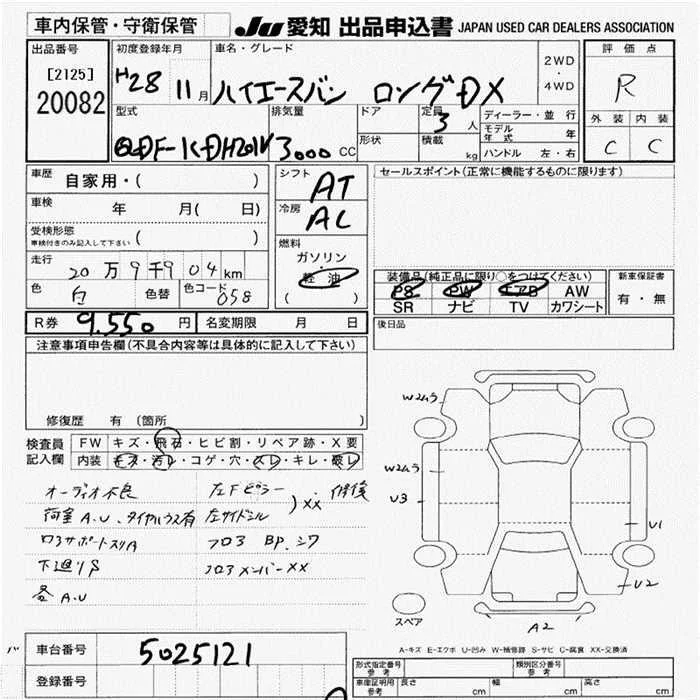 車内保管・守衛保管 JU 愛知 出品申込書 JAPAN USED CAR DEALERS ASSOCIATION
出品番号 初度登録年月 車名・グレード 評価点
[2125]
20082
H28 11月 ハイエースバン ロングDX 2WD・4WD R
型式 排気量 ドア 定員 3人 ディーラー・並行 外装 内装
形状 積載 kg モデル年式 年
QDF-KDH201V 3000cc ハンドル 左・右 C C
車歴 自家用・( ) シフト AT セールスポイント(正常に機能するものに限ります)
車検 年 月( 日) 冷房 AC
受検形態 ( )
車検付きのみ記入して下さい
燃料 ガソリン
走行 20万9千904km 軽油 装備品(純正品に限り○をつけてください) 新車保証書
色 白 色替 色コード 058 ( ) PS PW エアB AW 有・無
SR ナビ TV カワシート
R券 9.550円 名変期限 月 日 後日品
注意事項申告欄(不具合内容等は具体的に記入して下さい)
修復歴 有 (箇所 )
検査員記入欄 FW キズ・飛石・ヒビ割・リペア跡・X要
内装 モス・汚レ・コゲ・穴・スレ・キレ・破レ
W2ムラ
W2ムラ
U3
U1
U2
A2
スペア
オーディオ不良 左Fピラー )XX 修復
荷室A.U、タイヤハウス有 左サイドシル
コ3サポートスリA フロア BP.シワ
下廻りS フロアメンバーXX
各A.U
A-キズ E-エクボ U-凹み W-補修跡 S-サビ C-腐食 XX-交換済
車台番号 5025121
登録番号
形式指定番号 参考 類別区分番号 参考
車庫証明用 参考 長さ cm 幅 cm 高さ cm